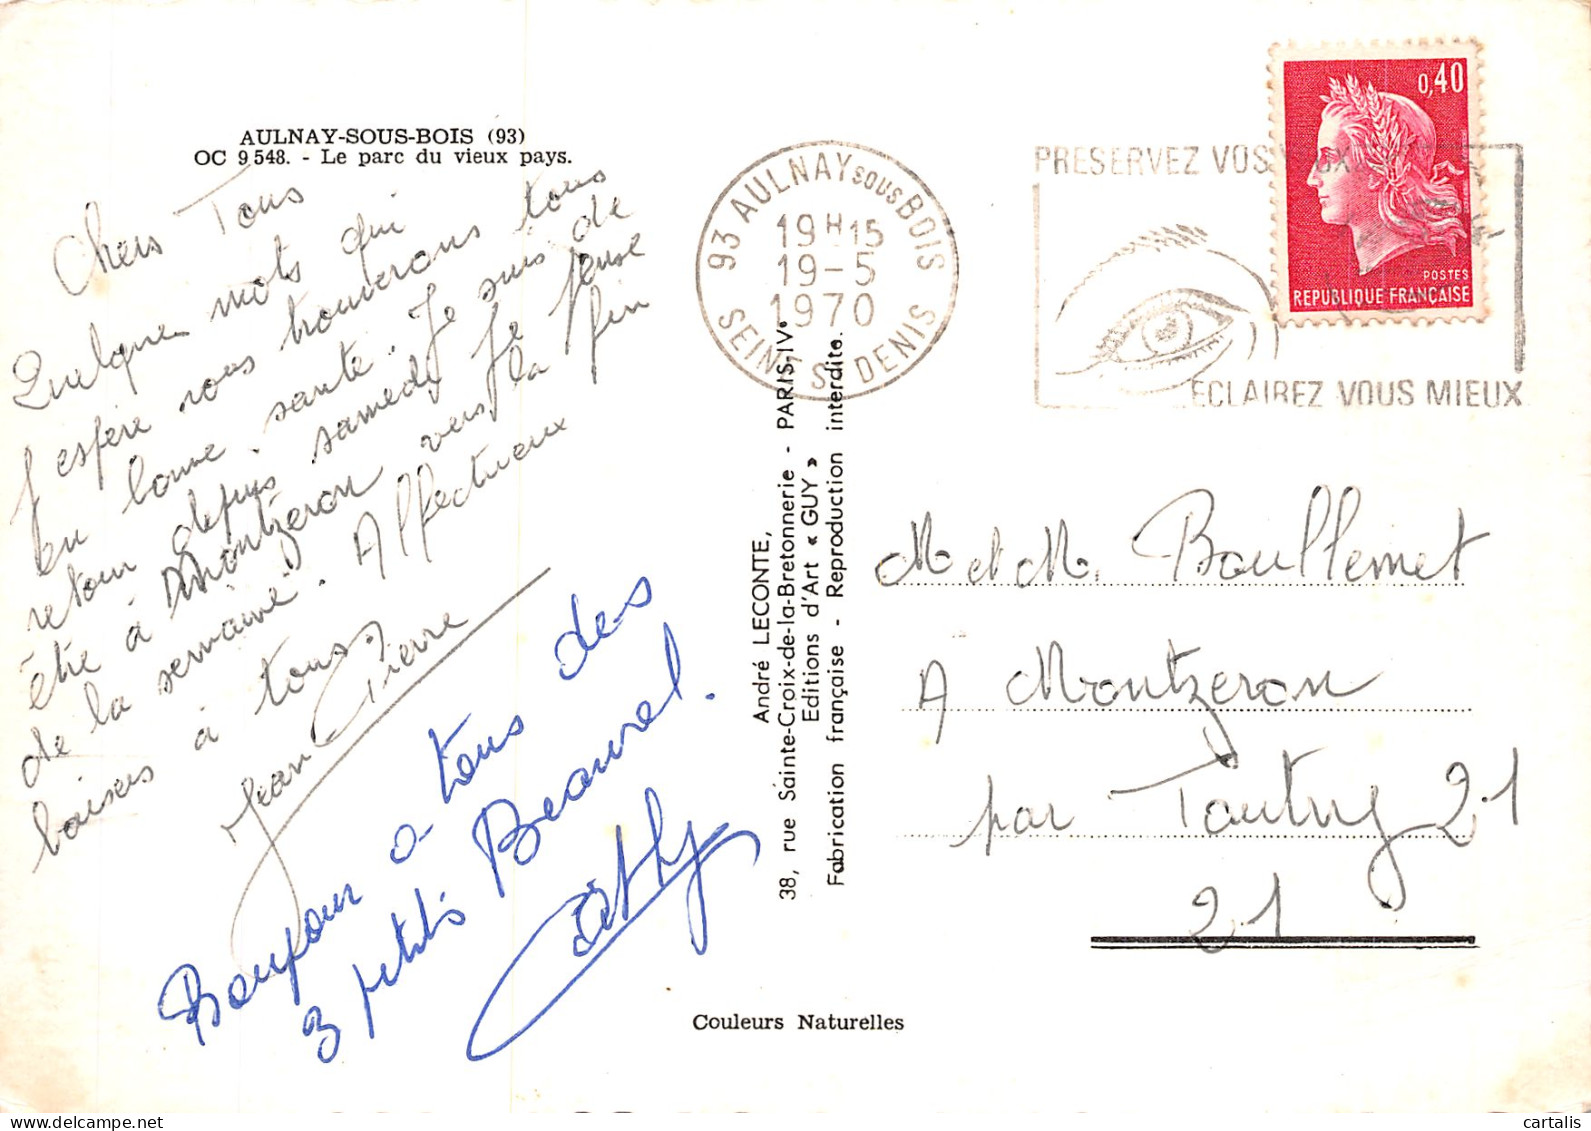 AULNAY-SOUS-BOIS (93)
OC 9548. - Le parc du vieux pays.
Chers Tous
Quelques mots qui
j'espère vous trouverons tous
en bonne santé. Je suis de
retour depuis samedi Je pense
être à Montzeron vers la fin
de la semaine. Affectueux
baisers à tous.
Jean Pierre
Bonjour à tous des
3 petits Beaurel.
Cathy
André LECONTE,
38, rue Sainte-Croix-de-la-Bretonnerie - PARIS-IVe
Editions d'Art « GUY »
Fabrication française - Reproduction interdite.
Couleurs Naturelles
93 AULNAY SOUS BOIS
19H15
19-5
1970
SEINE ST DENIS
PRESERVEZ VOS YEUX
ECLAIREZ VOUS MIEUX
0,40
POSTES
REPUBLIQUE FRANÇAISE
M et M. Boullemet
A Montzeron
par Toutry 21
21
cartalis